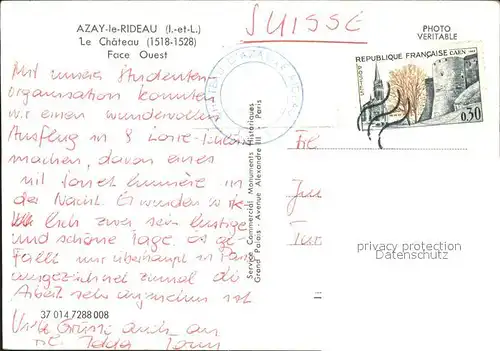 AZAY-le-RIDEAU (I.-et-L.)
Le Château (1518-1528)
Face Ouest
SUISSE
PHOTO
VERITABLE
REPUBLIQUE FRANÇAISE CAEN
POSTES
0,30
Mit unserer Studenten-
organisation konnten
wir einen wundervollen
Ausflug in 8 Loire-Schlösser
machen, davon eines
mit Son et lumière in
der Nacht. Es wurden
lich zwei sehr lustige
und schöne Tage. Es ge-
fällt mir überhaupt in Paris
ausgezeichnet zumal die
Arbeit sehr angenehm ist
Viele Grüsse auch an
Service Commercial Monuments Historiques
Grand Palais - Avenue Alexandre III - Paris
Frl
Tur
privacy protection
Datenschutz
37 014 7288 008